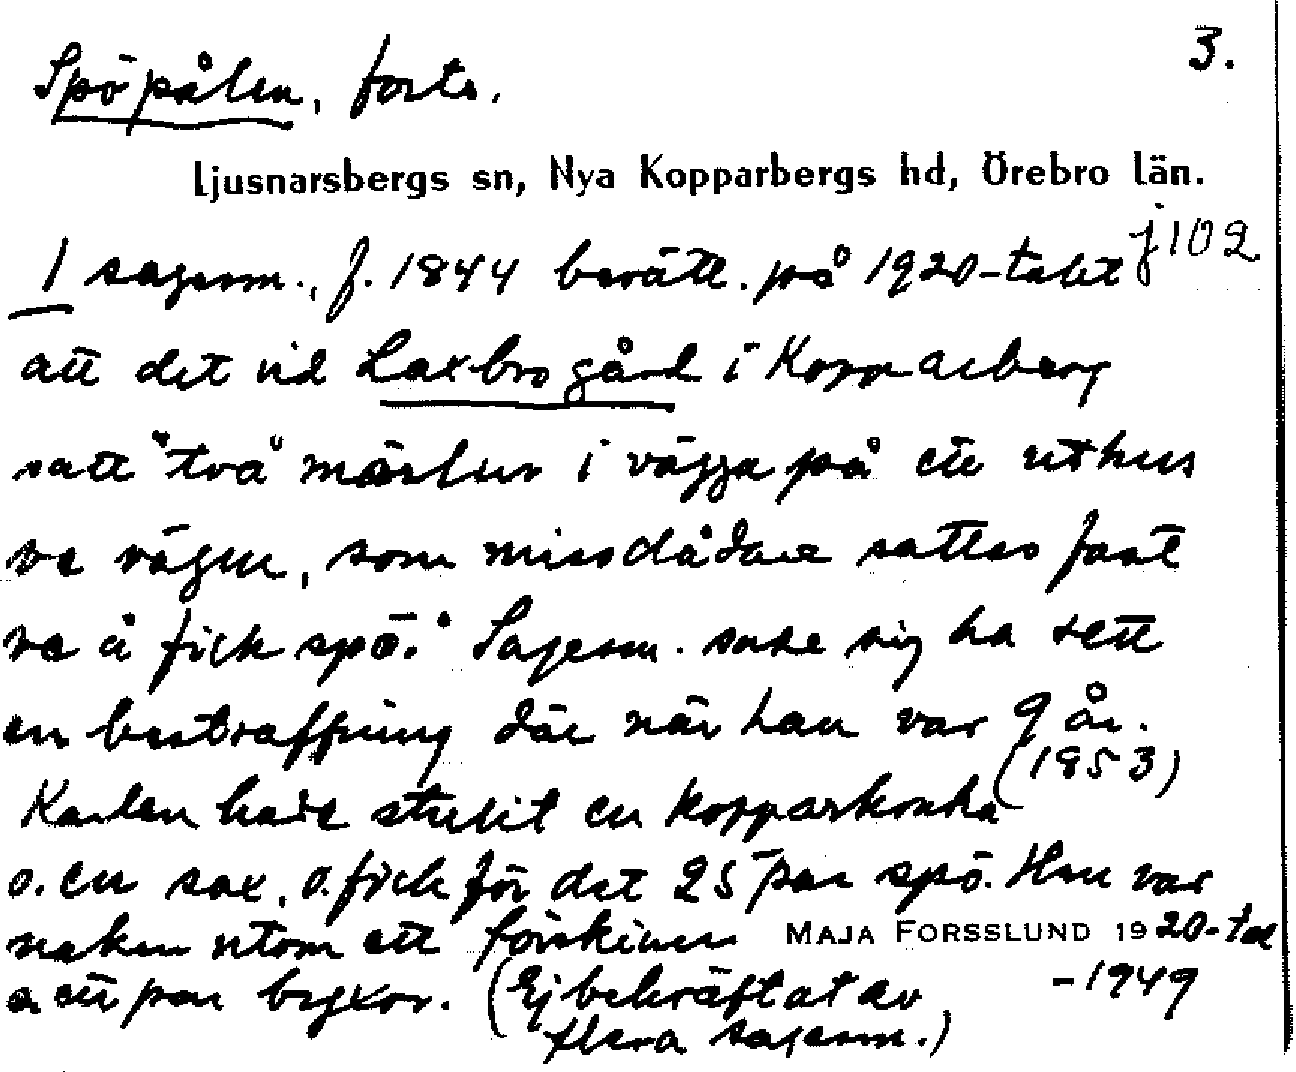 3.
Spöpålen, forts.
Ljusnarsbergs sn, Nya Kopparbergs hd, Örebro län.
j102
1 sagesm., f. 1844 berätt. på 1920-talet
att det vid Laxbro gård i Kopparberg
satt "två" märlor i vägga på ett uthus
ve vägen, som missdådare sattes fast
ve å fick spö." Sagesm. sade sig ha sett
en bestraffning där när han var 9 år.
(1853)
Karlen hade stulit en kopparkaka
o. en sax, o. fick för det 25 par spö. Han var
naken utom ett förskinn MAJA FORSSLUND 1920-tal
o. ett par byxor. (Ej bekräftat av -1949
flera sagesm.)